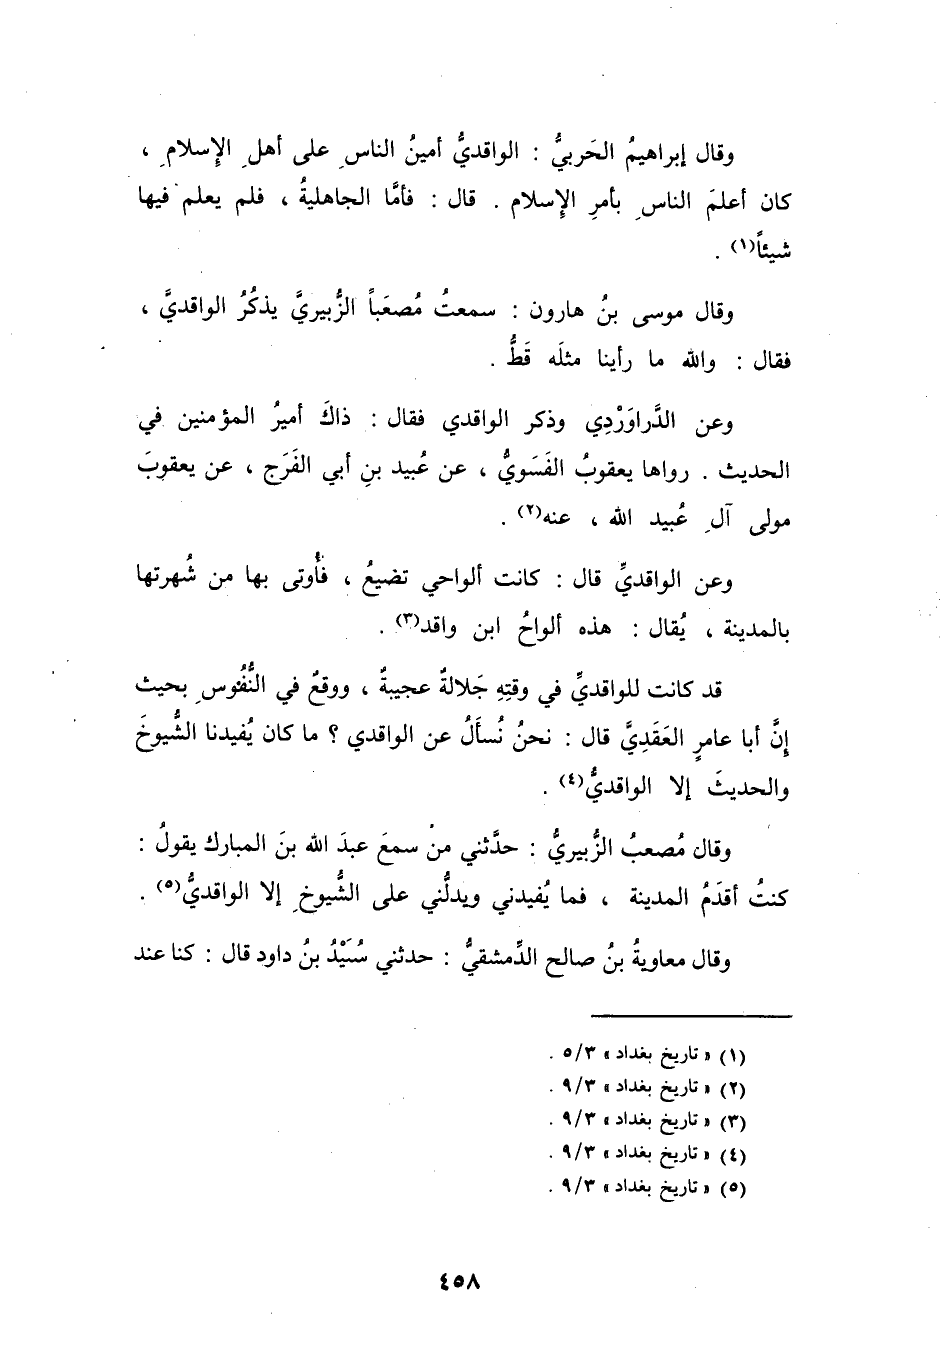 وقال إبراهيمُ الحَربيُّ : الواقديُّ أمينُ الناسِ على أهلِ الإِسلامِ ،
كان أعلمَ الناسِ بأمرِ الإِسلام . قال : فأمَّا الجاهليةُ ، فلم يعلم فيها
شيئاً(١) .
وقال موسى بنُ هارون : سمعتُ مُصعَباً الزُّبيريَّ يذكُرُ الواقديَّ ،
فقال : والله ما رأينا مثلَه قَطُّ .
وعن الدَّراوَرْدِي وذكر الواقدي فقال : ذاكَ أميرُ المؤمنين في
الحديث . رواها يعقوبُ الفَسَويُّ ، عن عُبيد بنِ أبي الفَرَج ، عن يعقوبَ
مولى آلِ عُبيد الله ، عنه(٢) .
وعن الواقديِّ قال : كانت ألواحي تضيعُ ، فأُوتى بها من شُهرتها
بالمدينة ، يُقال : هذه ألواحُ ابن واقد(٣) .
قد كانت للواقديِّ في وقتِهِ جَلالةٌ عجيبةٌ ، ووقعٌ في النُّفُوسِ بحيث
إنَّ أبا عامرٍ العَقَدِيَّ قال : نحنُ نُسأَلُ عن الواقدي ؟ ما كان يُفيدنا الشُّيوخَ
والحديثَ إلا الواقديُّ(٤) .
وقال مُصعبُ الزُّبيريُّ : حدَّثني منْ سمعَ عبدَ الله بنَ المبارك يقولُ :
كنتُ أقدَمُ المدينة ، فما يُفيدني ويدلُّني على الشُّيوخِ إلا الواقديُّ(٥) .
وقال معاويةُ بنُ صالح الدِّمشقيُّ : حدثني سُنَيْدُ بنُ داود قال : كنا عند
(١) « تاريخ بغداد » ٥/٣ .
(٢) « تاريخ بغداد » ٩/٣ .
(٣) « تاريخ بغداد » ٩/٣ .
(٤) « تاريخ بغداد » ٩/٣ .
(٥) « تاريخ بغداد » ٩/٣ .
٤٥٨